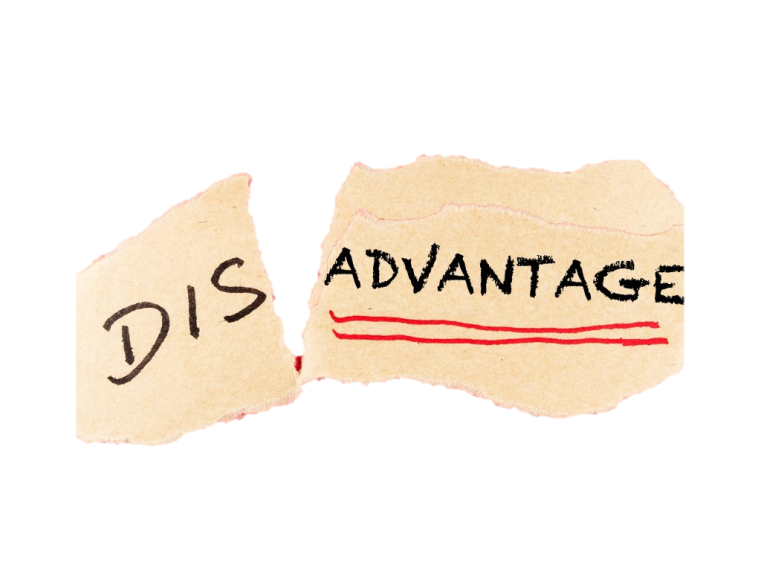 DIS ADVANTAGE